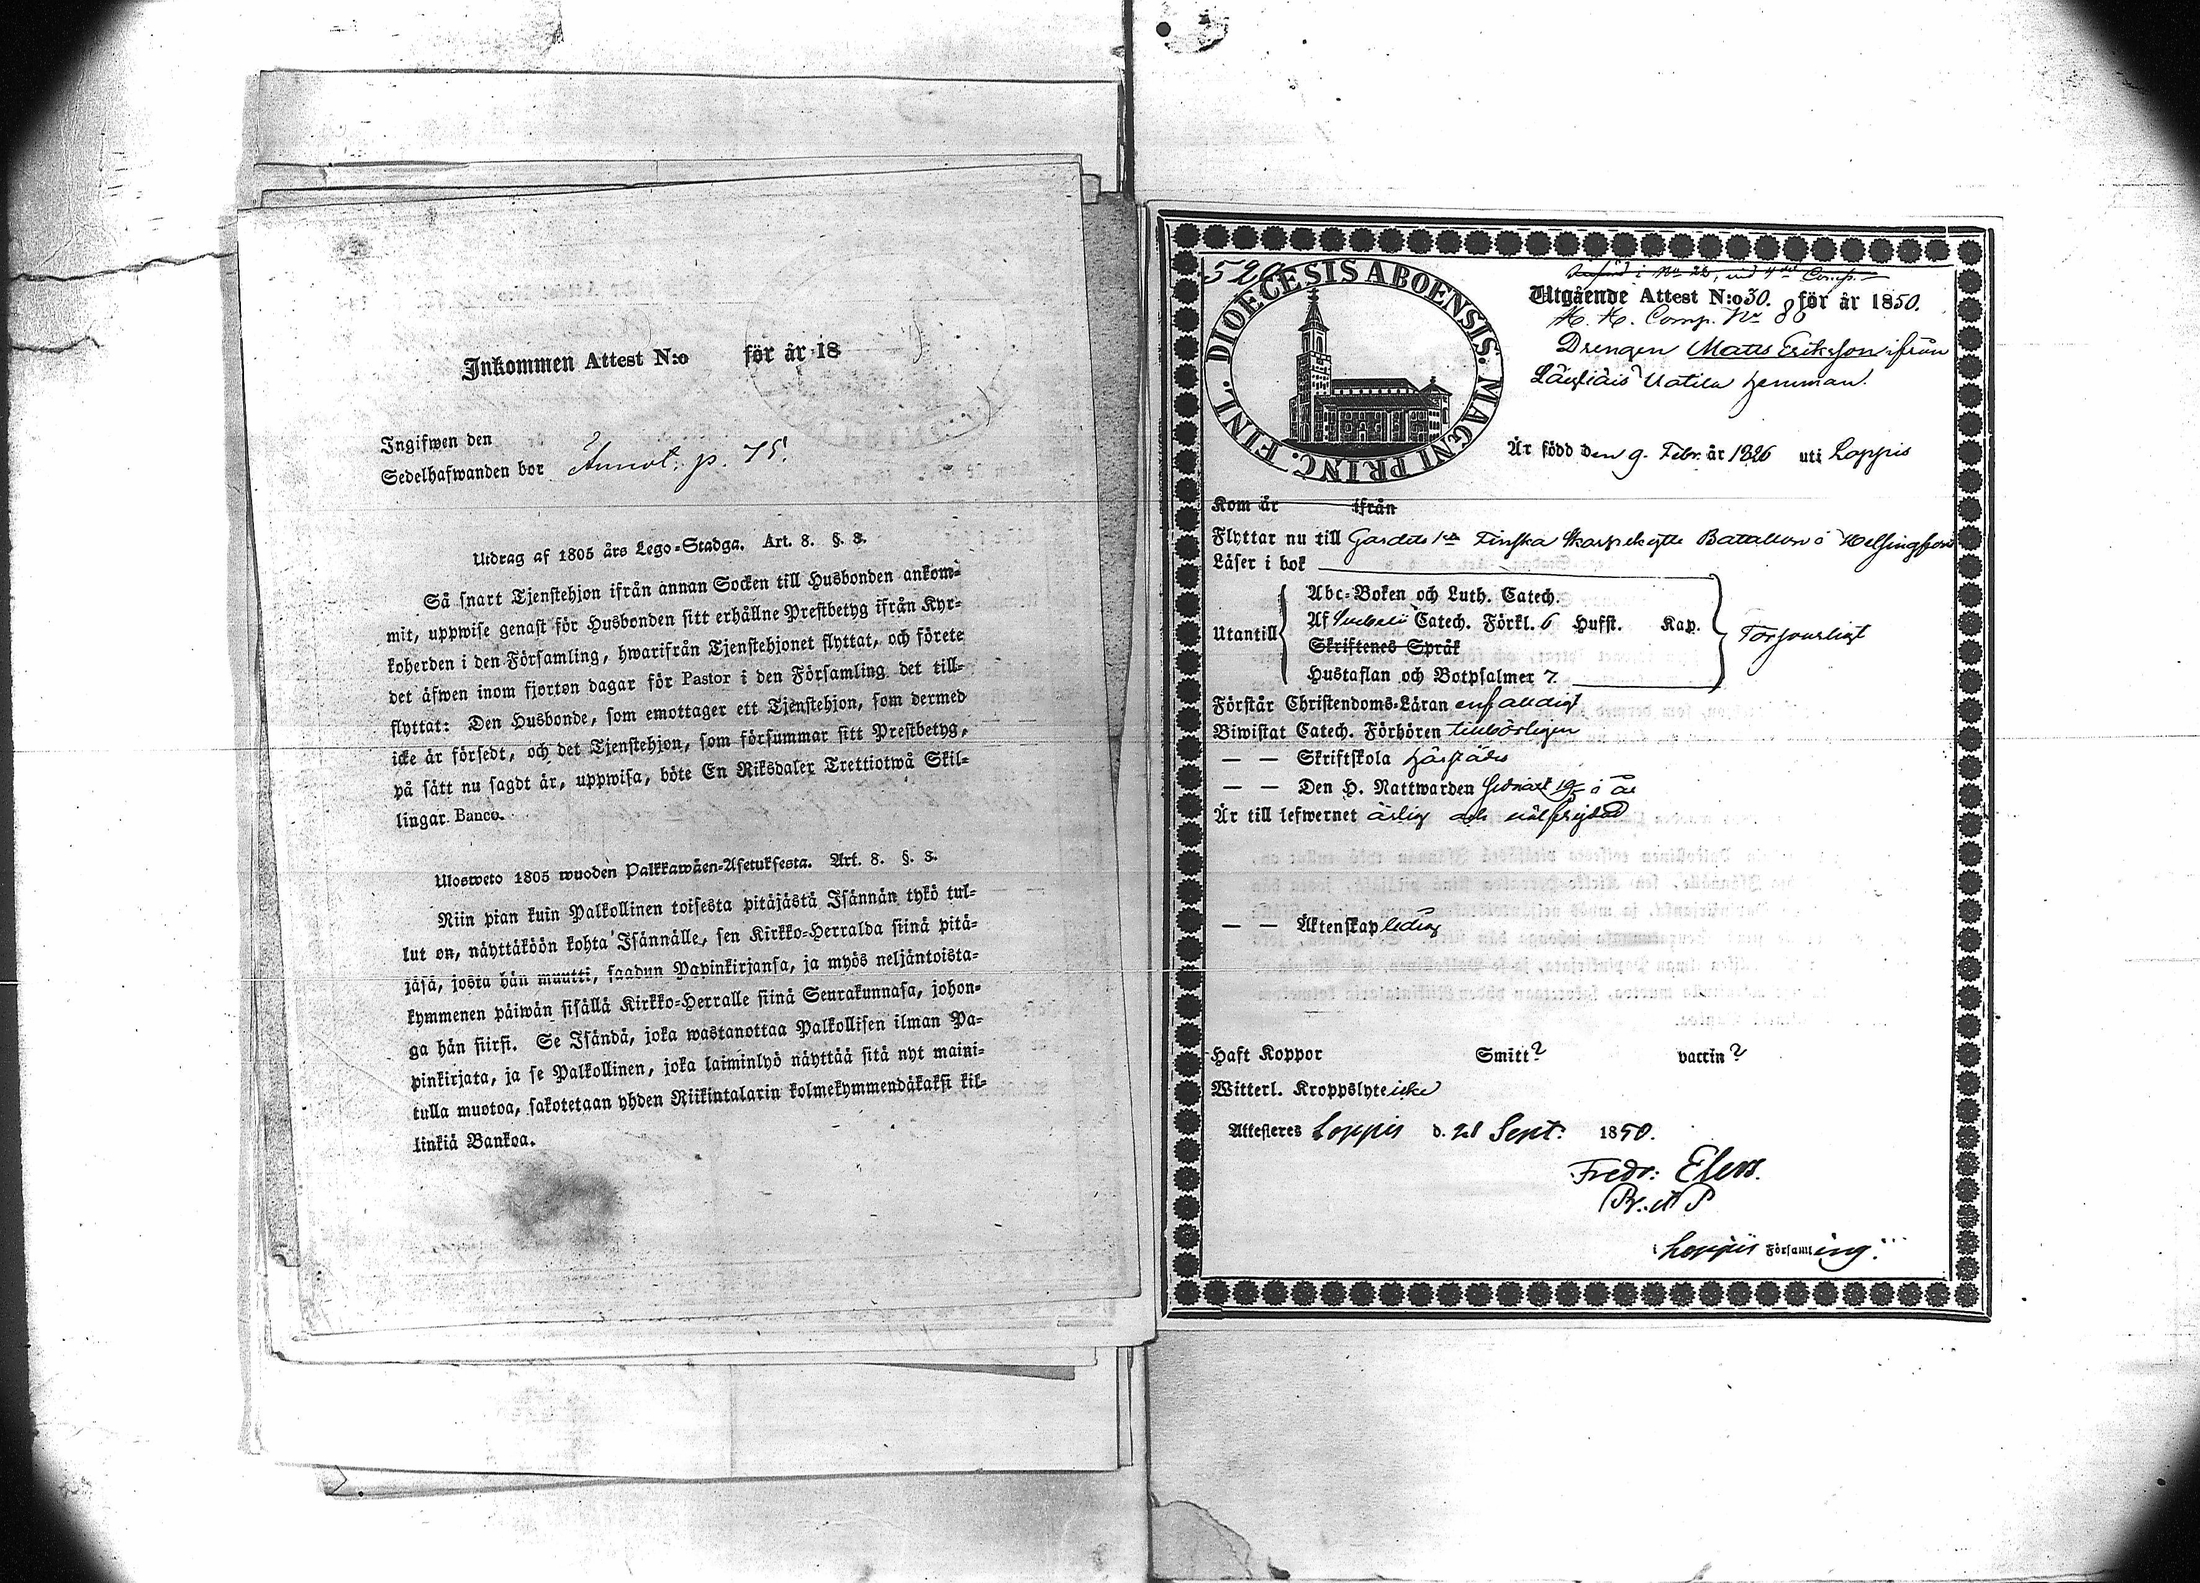 Inkommen Attest N:o för år 18
Ingifwen den
Sedelhafwanden bor Annot. p. 75.
Utdrag af 1805 års Lego-Stadga. Art. 8. §. 3.
Så snart Tjenstehjon ifrån annan Socken till Husbonden ankom-
mit, uppwise genast för Husbonden sitt erhållne Prestbetyg ifrån Kyr-
koherden i den Församling, hwarifrån Tjenstehjonet flyttat, och förete
det äfwen inom fjorton dagar för Pastor i den Församling det till-
flyttat: Den Husbonde, som emottager ett Tjenstehjon, som dermed
icke är försedt, och det Tjenstehjon, som försummar sitt Prestbetyg,
på sätt nu sagdt är, uppwisa, böte En Riksdaler Trettiotwå Skil-
lingar Banco.
Ulosweto 1805 wuoden Palkkawäen-Asetuksesta. Art. 8. §. 3.
Niin pian kuin Palkollinen toisesta pitäjästä Isännän tykö tul-
lut on, näyttäköön kohta Isännälle, sen Kirkko-Herralda siinä pitä-
jäsä, josta hän muutti, saadun Papinkirjansa, ja myös neljäntoista-
kymmenen päiwän sisällä Kirkko-Herralle siinä Seurakunnasa, johon-
ga hän siirsi. Se Isändä, joka wastanottaa Palkollisen ilman Pa-
pinkirjata, ja se Palkollinen, joka laiminlyö näyttää sitä nyt maini-
tulla muotoa, sakotetaan yhden Riikintalarin kolmekymmendäkaksi kil-
linkiä Bankoa.
520
DIOECESIS ABOENSIS. MAGNI PRINC. FINL.
Utgående Attest N:o 30. för år 1850.
K. K. Comp. No 80
Drengen Matts Eriksson ifrån
Uotila hemman.
Är född den 9. Febr. år 1826 uti Loppis
Kom år ifrån
Flyttar nu till Gardets Finska Skarpskytte Bataillon i Helsingfors
Läser i bok
Abc-Boken och Luth. Catech.
Utantill Af Catech. Förkl. 6 Hufst. Kap. Försvarligt
Skriftenes Språk
Hustaflan och Botpsalmer 7
Förstår Christendoms-Läran enfaldigt
Biwistat Catech. Förhören tillbörligen
— — Skriftskola härstädes
— — Den H. Nattwarden
Är till lefwernet ärlig och välfrejdad
— — Äktenskap ledig
Haft Koppor Smitt? vaccin?
Witterl. Kroppslyte icke
Attesteres Loppis d. 21 Sept. 1850.
Fredr: Elers.
i Loppis Församling.